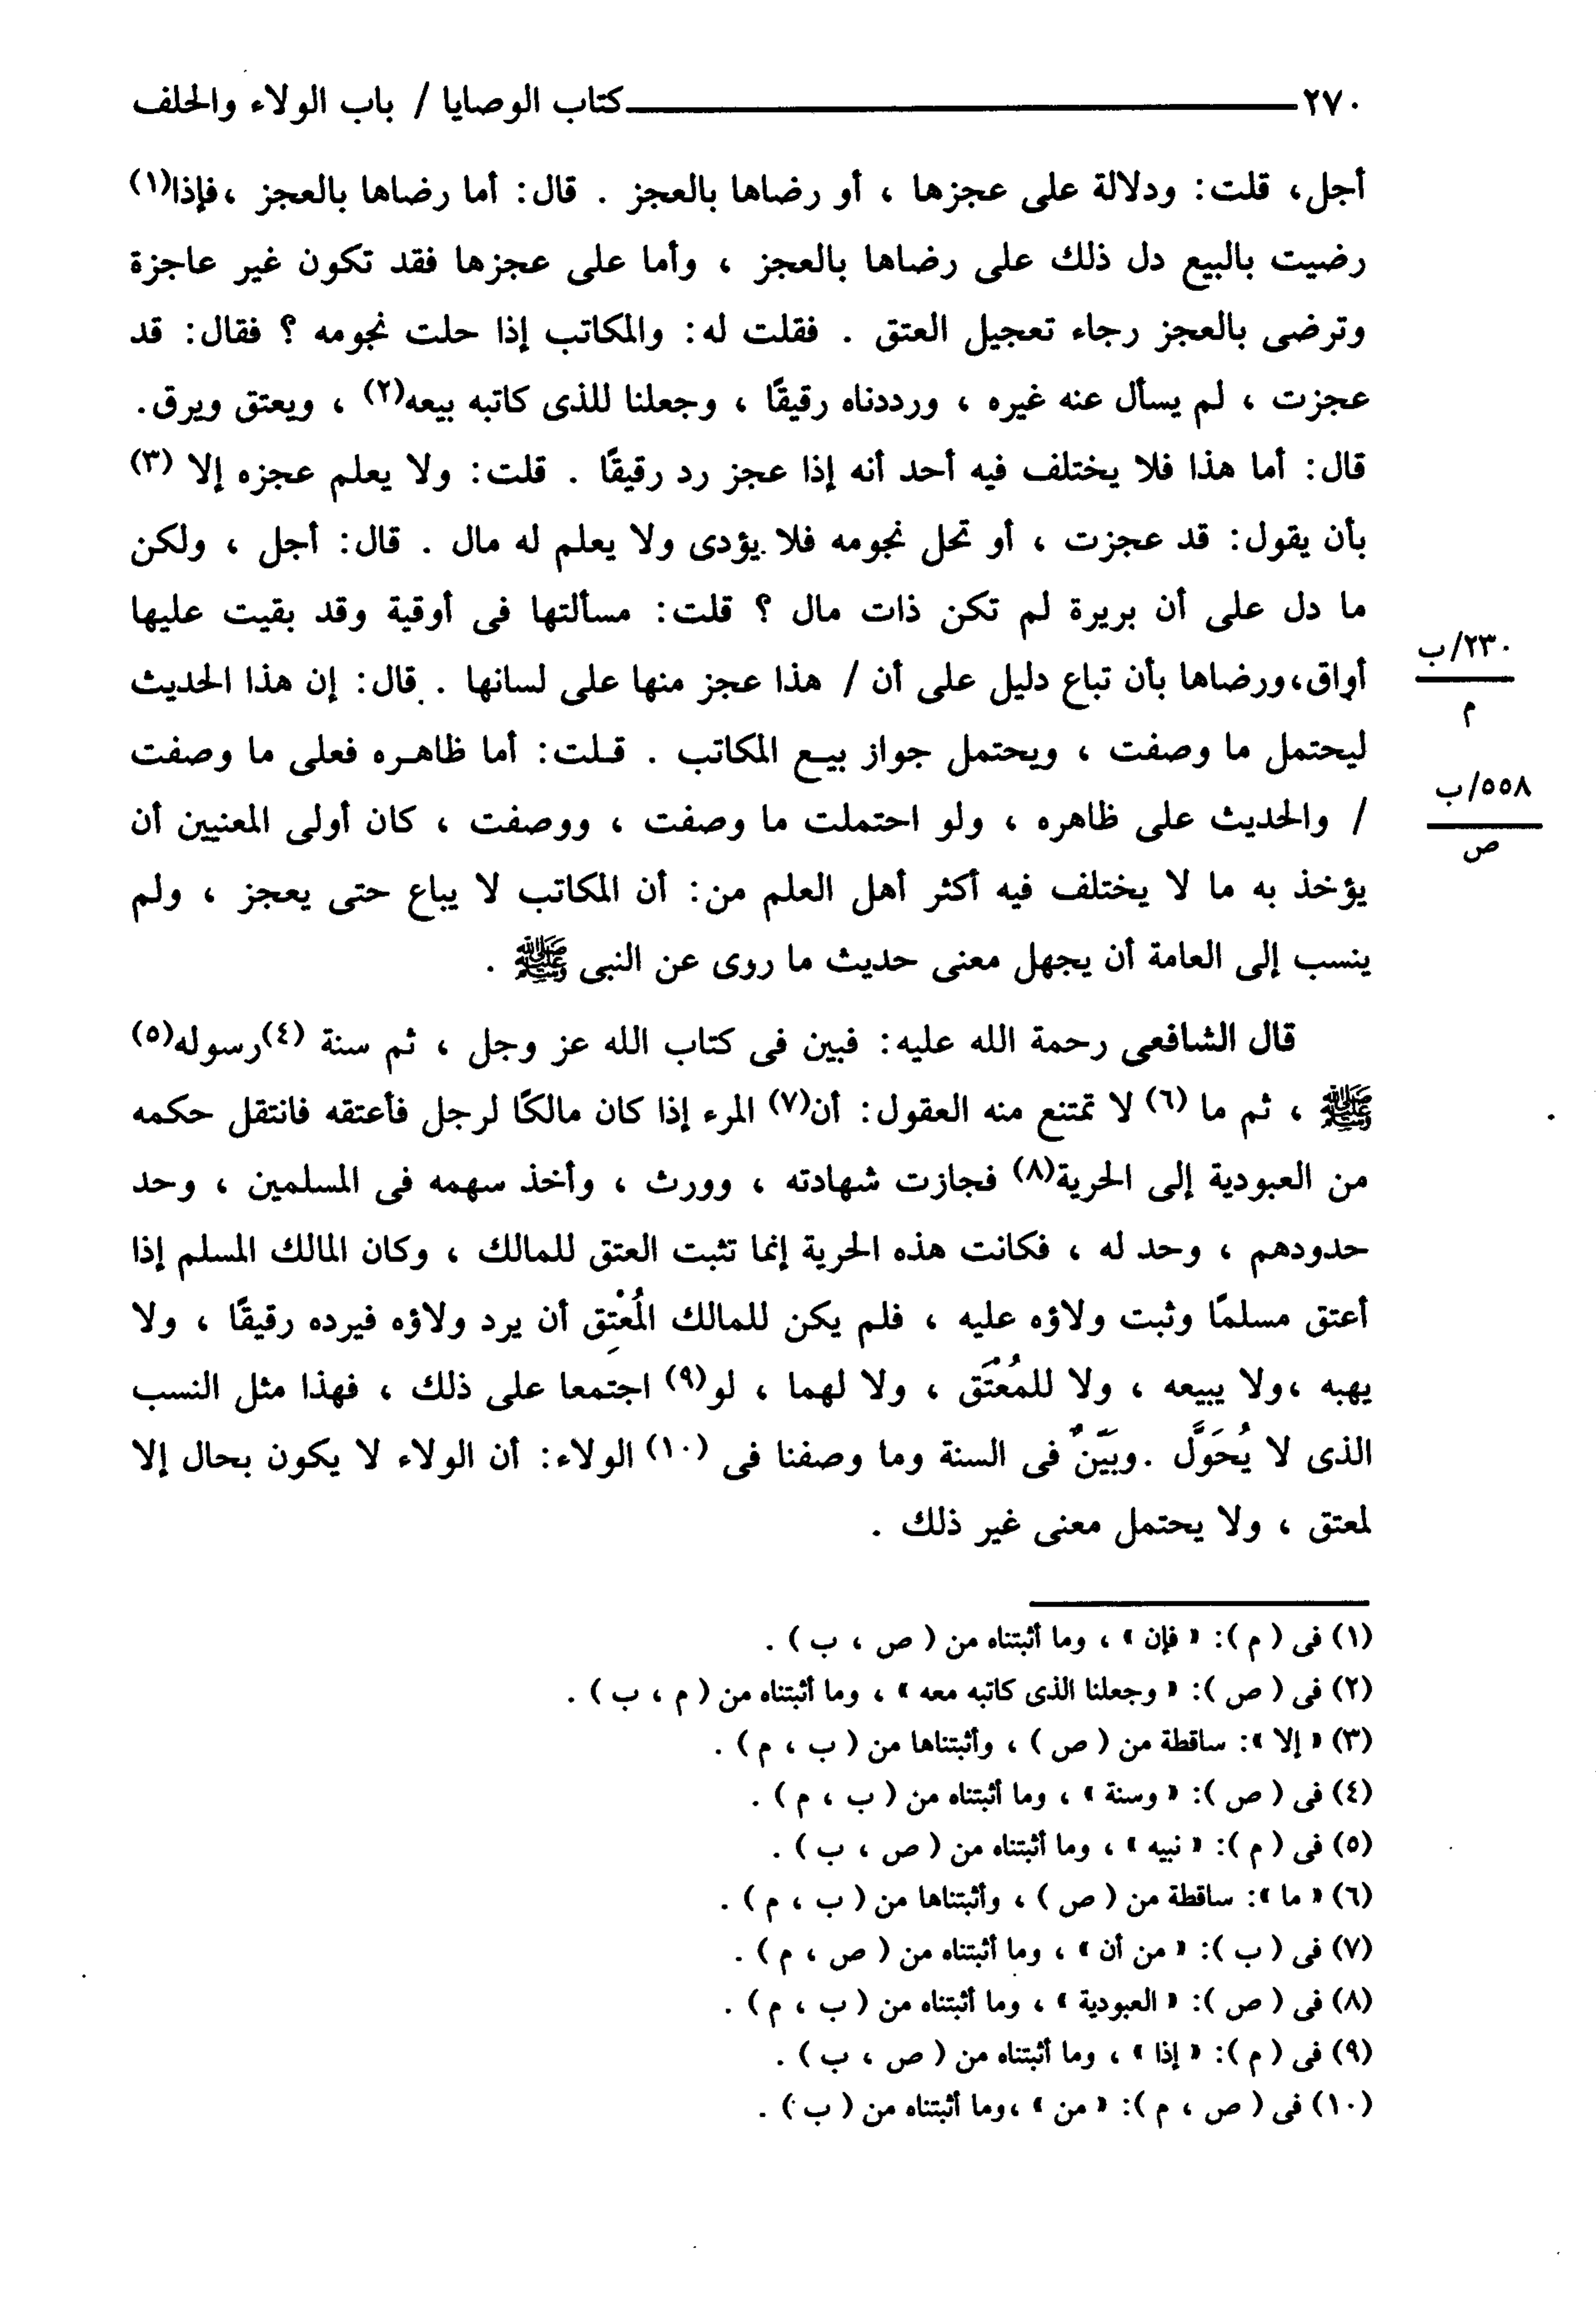 ٢٧٠ كتاب الوصايا / باب الولاء والحلف
أجل، قلت: ودلالة على عجزها ، أو رضاها بالعجز . قال: أما رضاها بالعجز ،فإذا(١)
رضيت بالبيع دل ذلك على رضاها بالعجز ، وأما على عجزها فقد تكون غير عاجزة
وترضى بالعجز رجاء تعجيل العتق . فقلت له: والمكاتب إذا حلت نجومه ؟ فقال: قد
عجزت ، لم يسأل عنه غيره ، ورددناه رقيقًا ، وجعلنا للذى كاتبه بيعه(٢) ، ويعتق ويرق.
قال: أما هذا فلا يختلف فيه أحد أنه إذا عجز رد رقيقًا . قلت: ولا يعلم عجزه إلا (٣)
بأن يقول: قد عجزت ، أو تحل نجومه فلا يؤدى ولا يعلم له مال . قال: أجل ، ولكن
ما دل على أن بريرة لم تكن ذات مال ؟ قلت: مسألتها فى أوقية وقد بقيت عليها
٢٣٠/ب
م
أواق،ورضاها بأن تباع دليل على أن / هذا عجز منها على لسانها . قال: إن هذا الحديث
ليحتمل ما وصفت ، ويحتمل جواز بيـع المكاتب . قـلت: أما ظاهـره فعلى ما وصفت
٥٥٨/ب
ص
/ والحديث على ظاهره ، ولو احتملت ما وصفت ، ووصفت ، كان أولى المعنيين أن
يؤخذ به ما لا يختلف فيه أكثر أهل العلم من: أن المكاتب لا يباع حتى يعجز ، ولم
ينسب إلى العامة أن يجهل معنى حديث ما روى عن النبى ﷺ .
قال الشافعى رحمة الله عليه: فبين فى كتاب الله عز وجل ، ثم سنة (٤)رسوله(٥)
ﷺ ، ثم ما (٦) لا تمتنع منه العقول: أن(٧) المرء إذا كان مالكًا لرجل فأعتقه فانتقل حكمه
من العبودية إلى الحرية(٨) فجازت شهادته ، وورث ، وأخذ سهمه فى المسلمين ، وحد
حدودهم ، وحد له ، فكانت هذه الحرية إنما تثبت العتق للمالك ، وكان المالك المسلم إذا
أعتق مسلمًا وثبت ولاؤه عليه ، فلم يكن للمالك المُعْتِق أن يرد ولاؤه فيرده رقيقًا ، ولا
يهبه ،ولا يبيعه ، ولا للمُعْتَق ، ولا لهما ، لو(٩) اجتمعا على ذلك ، فهذا مثل النسب
الذى لا يُحَوَّل .وبَيِّنٌ فى السنة وما وصفنا فى (١٠) الولاء: أن الولاء لا يكون بحال إلا
لمعتق ، ولا يحتمل معنى غير ذلك .
(١) فى ( م ): « فإن » ، وما أثبتناه من ( ص ، ب ) .
(٢) فى ( ص ): « وجعلنا الذى كاتبه معه » ، وما أثبتناه من ( م ، ب ) .
(٣) « إلا »: ساقطة من ( ص ) ، وأثبتناها من ( ب ، م ) .
(٤) فى ( ص ): « وسنة » ، وما أثبتناه من ( ب ، م ) .
(٥) فى ( م ): « نبيه » ، وما أثبتناه من ( ص ، ب ) .
(٦) « ما »: ساقطة من ( ص ) ، وأثبتناها من ( ب ، م ) .
(٧) فى ( ب ): « من أن » ، وما أثبتناه من ( ص ، م ) .
(٨) فى ( ص ): « العبودية » ، وما أثبتناه من ( ب ، م ) .
(٩) فى ( م ): « إذا » ، وما أثبتناه من ( ص ، ب ) .
(١٠) فى ( ص ، م ): « من » ،وما أثبتناه من ( ب ) .